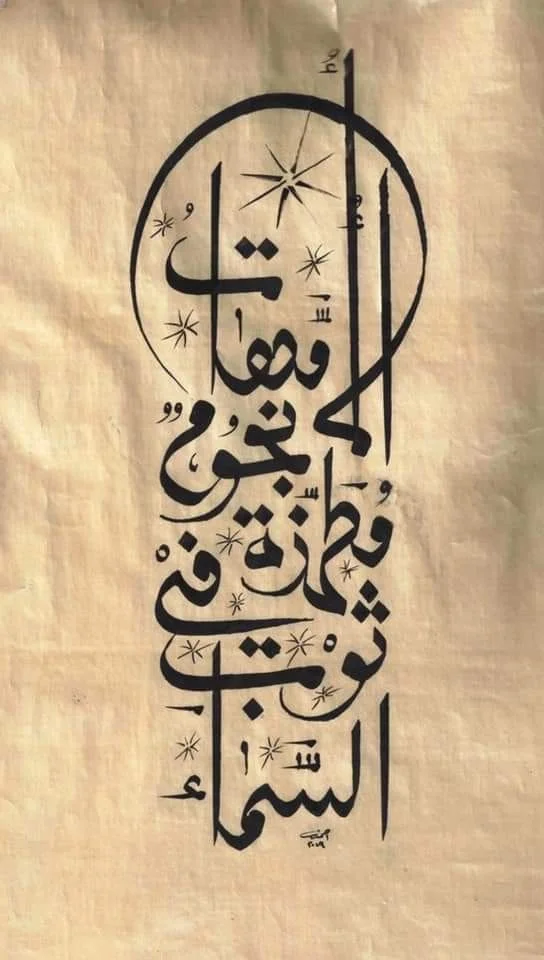 الأُمَّهاتُ
نُجُومٌ
مُطَرَّزة
فيْ
ثوْبِ
السَّماءِ